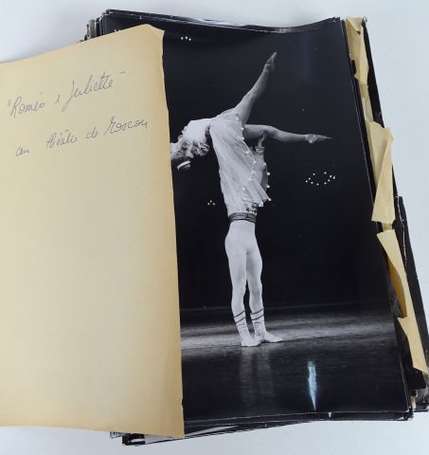 "Roméo & Juliette"
au théâtre de Moscou